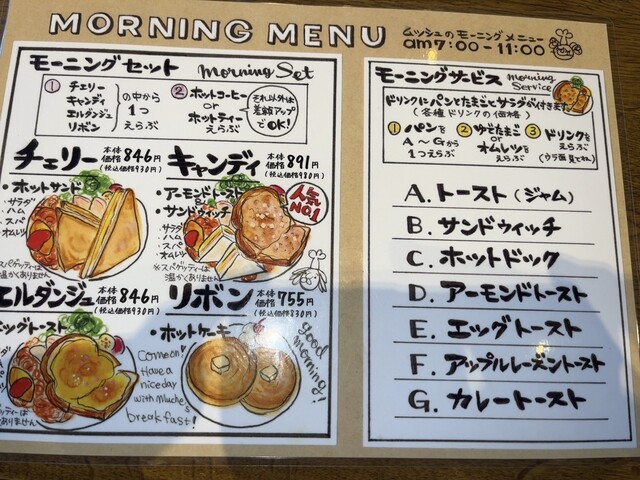 MORNING MENU
ムッシュのモーニングメニュー
am7:00-11:00
モーニングセット morning Set
① チェリー
キャンディ
エルダンジュ
リボン
の中から
1つ
えらぶ
② ホットコーヒー
or
ホットティー
えらぶ
それ以外は
差額アップ
でOK!
チェリー 本体価格846円
(税込価格930円)
・ホットサンド
・サラダ
・ハム
・スパ
・オムレツ
温かくありません
キャンディ 本体価格891円
(税込価格980円)
・アーモンドトースト
&
・サンドウィッチ
・サラダ
・ハム
・スパ
・オムレツ
人気
No.1
※スパゲッティーは
温かくありません
エルダンジュ 本体価格846円
(税込価格930円)
エッグトースト
リボン 本体価格755円
(税込価格830円)
・ホットケーキ
Come on!
Have a
nice day
with Muche's
breakfast!
Good
morning!
モーニングサービス morning
Service
ドリンクにパンとたまごとサラダが付きます
(各種ドリンクの価格)
① パンを
A〜Gから
1つえらぶ
② ゆでたまご
or
オムレツを
えらぶ
③ ドリンクを
えらぶ
(ウラ面見てね)
A. トースト(ジャム)
B. サンドウィッチ
C. ホットドック
D. アーモンドトースト
E. エッグトースト
F. アップルレーズントースト
G. カレートースト